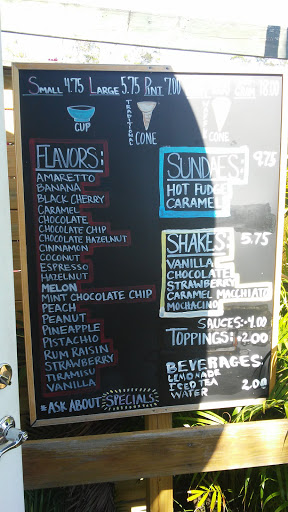 SMALL 4.75 LARGE 5.75 PINT 7.00
CUP
TRADITIONAL
CONE
CONE
FLAVORS:
AMARETTO
BANANA
BLACK CHERRY
CARAMEL
CHOCOLATE
CHOCOLATE CHIP
CHOCOLATE HAZELNUT
CINNAMON
COCONUT
ESPRESSO
HAZELNUT
MELON
MINT CHOCOLATE CHIP
PEACH
PEANUT
PINEAPPLE
PISTACHIO
RUM RAISIN
STRAWBERRY
TIRAMISU
VANILLA
*ASK ABOUT SPECIALS
SUNDAES: 9.75
HOT FUDGE
CARAMEL
SHAKES: 5.75
VANILLA
CHOCOLATE
STRAWBERRY
CARAMEL MACCHIATO
MOCHACINO
SAUCES: 4.00
TOPPINGS: 2.00
BEVERAGES:
LEMONADE
ICED TEA 2.00
WATER 2.00